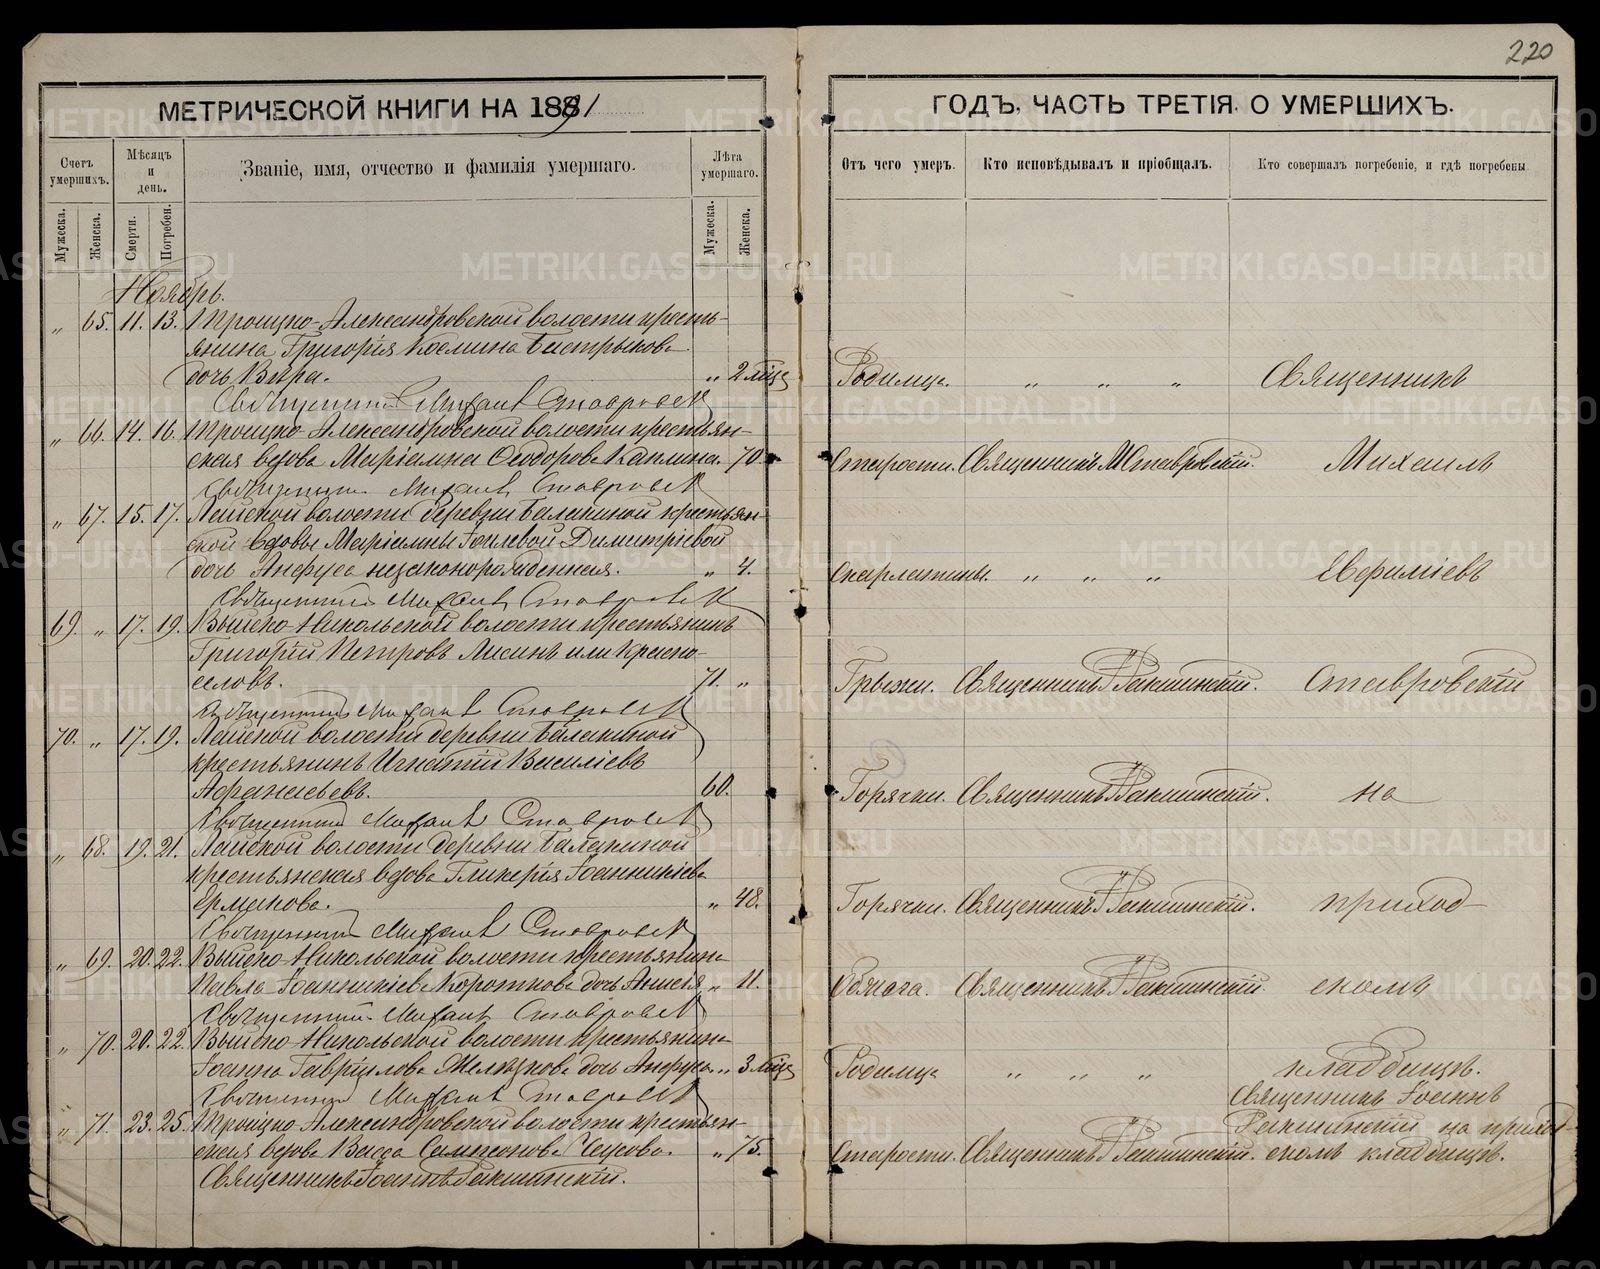 220
МЕТРИЧЕСКОЙ КНИГИ НА 1891
ГОДЪ, ЧАСТЬ ТРЕТІЯ. О УМЕРШИХЪ.
Счетъ умершихъ.
Мѣсяцъ и день.
Званіе, имя, отчество и фамилія умершаго.
Лѣта умершаго.
Отъ чего умеръ.
Кто исповѣдывалъ и пріобщалъ.
Кто совершалъ погребеніе, и гдѣ погребены
Мужеска.
Женска.
Смерти.
Погребен.
Мужеска.
Женска.
Ноябрь.
„ 65. 11. 13. Троицко-Александровской волости кресть-
янина Григорія Космина Бастрыкова
дочь Вѣра. „ 2 мѣс. Родимца. „ „ „ Священникъ
Священникъ Михаилъ Ставровскій
„ 66. 14. 16. Троицко-Александровской волости крестьян-
ская вдова Маріамна Ѳеодорова Катина. 70. Старости. Священникъ М Ставровскій. Михаилъ
Священникъ Михаилъ Ставровскій
„ 67. 15. 17. Лайской волости деревни Балакиной крестьян-
ской вдовы Маріамны Іоилевой Димитріевой
дочь Анфуса незаконорожденная. „ 4. Скарлатины. „ „ „ Евфиміевъ
Священникъ Михаилъ Ставровскій
69. „ 17. 19. Выйско-Никольской волости крестьянинъ
Григорій Петровъ Лисинъ или Красно-
селовъ. 71. „ Грыжи. Священникъ І Ракшинскій. Ставровскій
Священникъ Михаилъ Ставровскій
70. „ 17. 19. Лайской волости деревни Балакиной
крестьянинъ Игнатій Василіевъ
Афанасьевъ. 60. Горячки. Священникъ І Ракшинскій. на
Священникъ Михаилъ Ставровскій
„ 68. 19. 21. Лайской волости деревни Балакиной
крестьянская вдова Гликерія Іоанникіева
Ермакова. „ 48. Горячки. Священникъ І Ракшинскій. приход-
Священникъ Михаилъ Ставровскій
„ 69. 20. 22. Выйско-Никольской волости крестьянина
Павла Іоанникіева Короткова дочь Анисія „ 11. Священникъ І Ракшинскій. скомъ
Священникъ Михаилъ Ставровскій
„ 70. 20. 22. Выйско-Никольской волости крестьянина
Іоанна Гавріилова Желѣзкова дочь Анфуса. „ 3 мѣс. Родимца „ „ „ кладбищѣ.
Священникъ Михаилъ Ставровскій
Священникъ Іоаннъ
„ 71. 23. 25. Троицко Александровской волости крестьян-
Ракшинскій на приход-
ская вдова Васса Сампсонова Чеусова. „ 75. Старости. Священникъ І Ракшинскій. скомъ кладбищѣ.
Священникъ Іоаннъ Ракшинскій.
METRIKI.GASO-URAL.RU